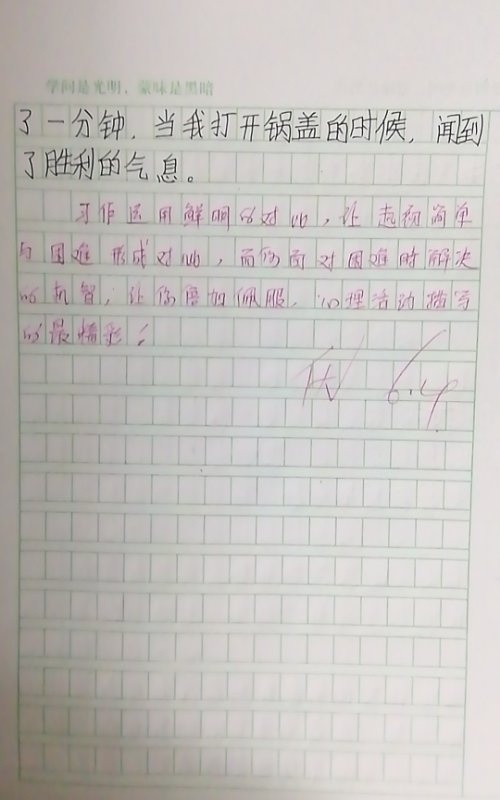 学问是光明，蒙昧是黑暗
了一分钟，当我打开锅盖的时候，闻到
了胜利的气息。
习作运用鲜明的对比，让起初简单
与困难形成对比，而你面对困难时解决
的机智，让你倍加佩服，心理活动描写
的最精彩！
优 6.4